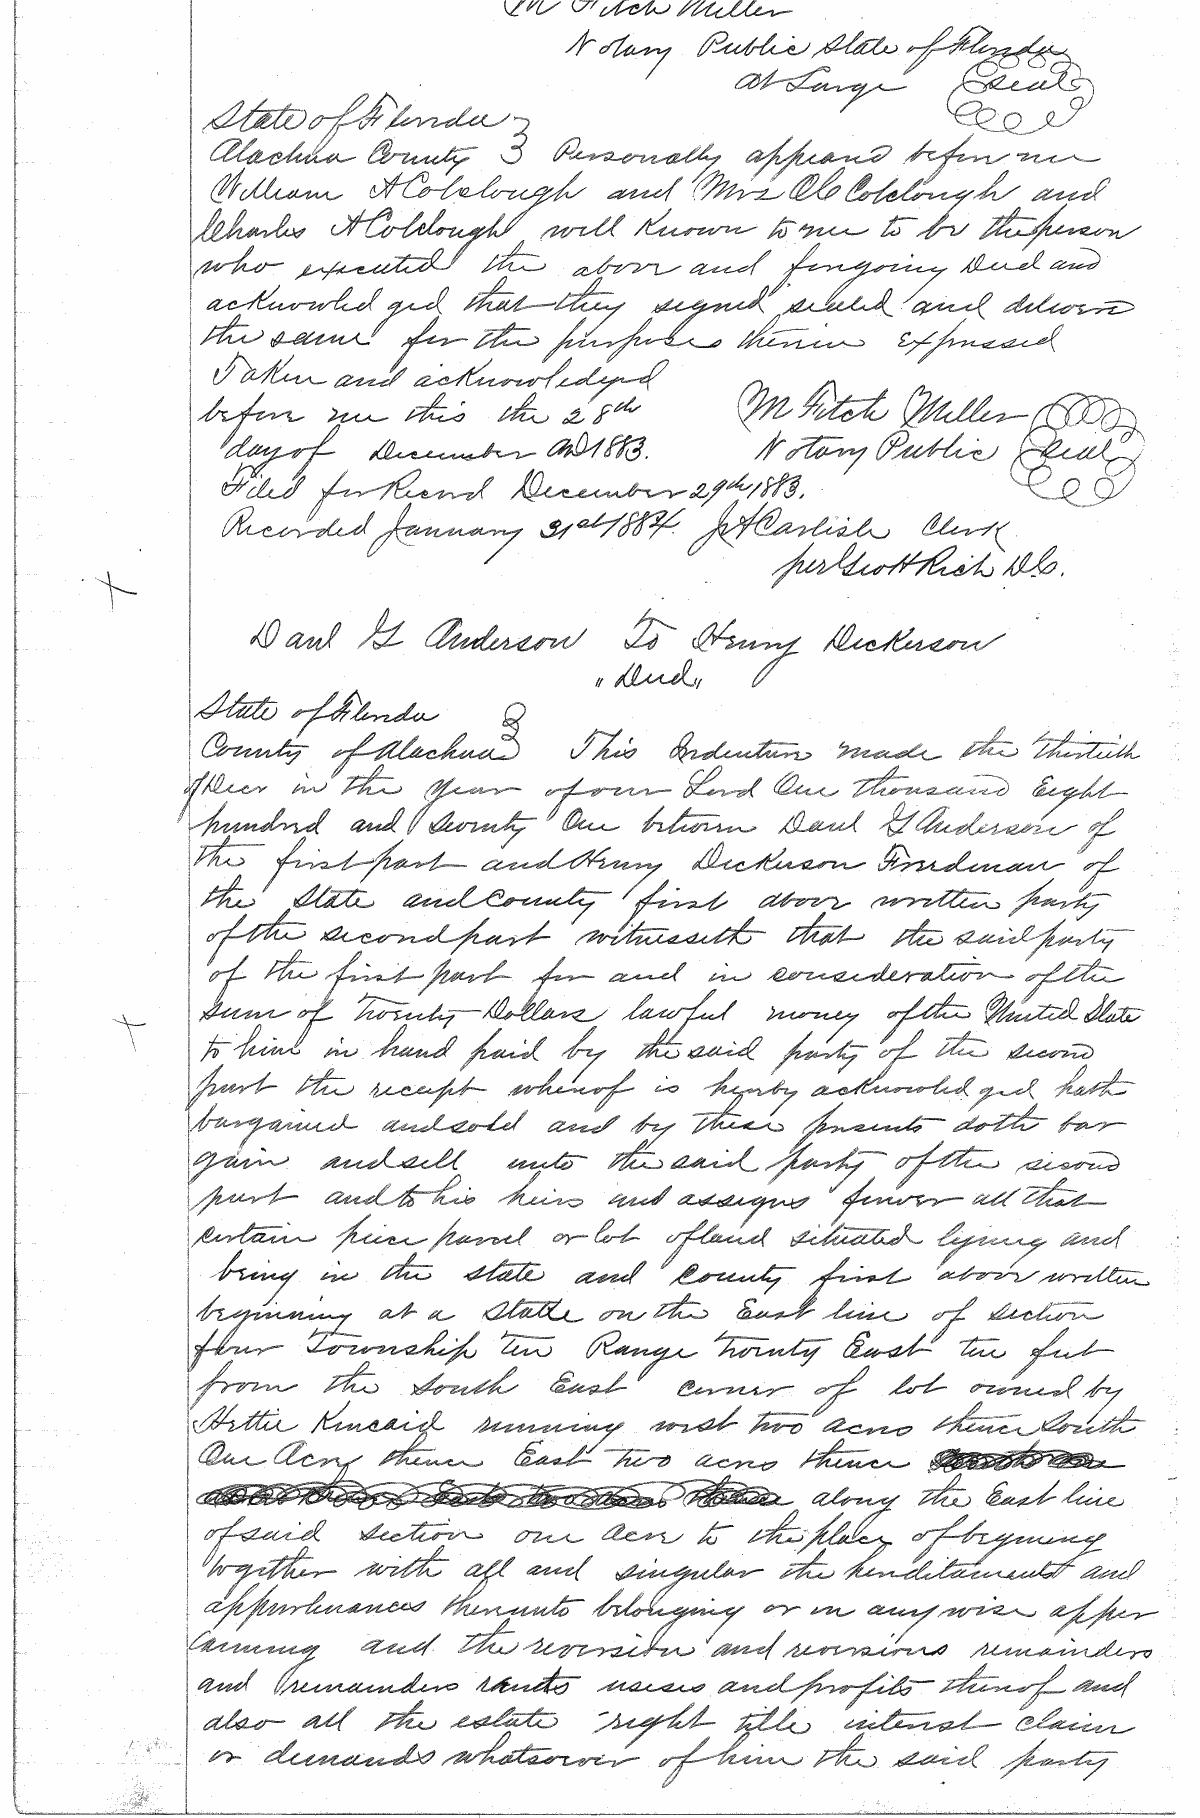 M Fitch Miller
Notary Public State of Florida
At Large Seal
State of Florida
Alachua County } Personally appeard before me
William A Colclough and Mrs C C Colclough and
Charles A Colclough well Known to me to be the person
who executed the above and foregoing Deed and
acknowledged that they signed sealed and delivere
the same for the purposes therein expressed
Taken and acknowledged
before me this the 28th
day of December AD 1883.
M Fitch Miller
Notary Public Seal
Filed for Record December 29th 1883.
Recorded January 31st 1884. J A Carlisle Clerk
per Geo H Rich D.C.
Danl G Anderson To Henry Dickerson
"Deed"
State of Florida
County of Alachua } This Indenture made the thirtieth
of Decr in the year of our Lord One thousand Eight
hundred and Seventy One between Danl G Anderson of
the first part and Henry Dickerson Freedman of
the State and County first above written party
of the second part witnesseth that the said party
of the first part for and in consideration of the
sum of Twenty Dollars lawful money of the United State
to him in hand paid by the said party of the second
part the receipt whereof is hereby acknowledged hath
bargained and sold and by these presents doth bar
gain and sell unto the said party of the second
part and to his heirs and assigns forever all that
certain piece parcel or lot of land situated lying and
being in the state and County first above written
beginning at a Stake on the East line of section
four Township Ten Range Twenty East ten feet
from the South East corner of lot owned by
Hettie Kincaid running west two acres thence South
One Acre thence East two acres thence
along the East line
of said section one acre to the place of beginning
together with all and singular the hereditaments and
appurtenances thereunto belonging or in anywise apper
taining and the reversion and reversions remainders
and remainders rents uses and profits thereof and
also all the estate right title interest claim
or demands whatsoever of him the said party